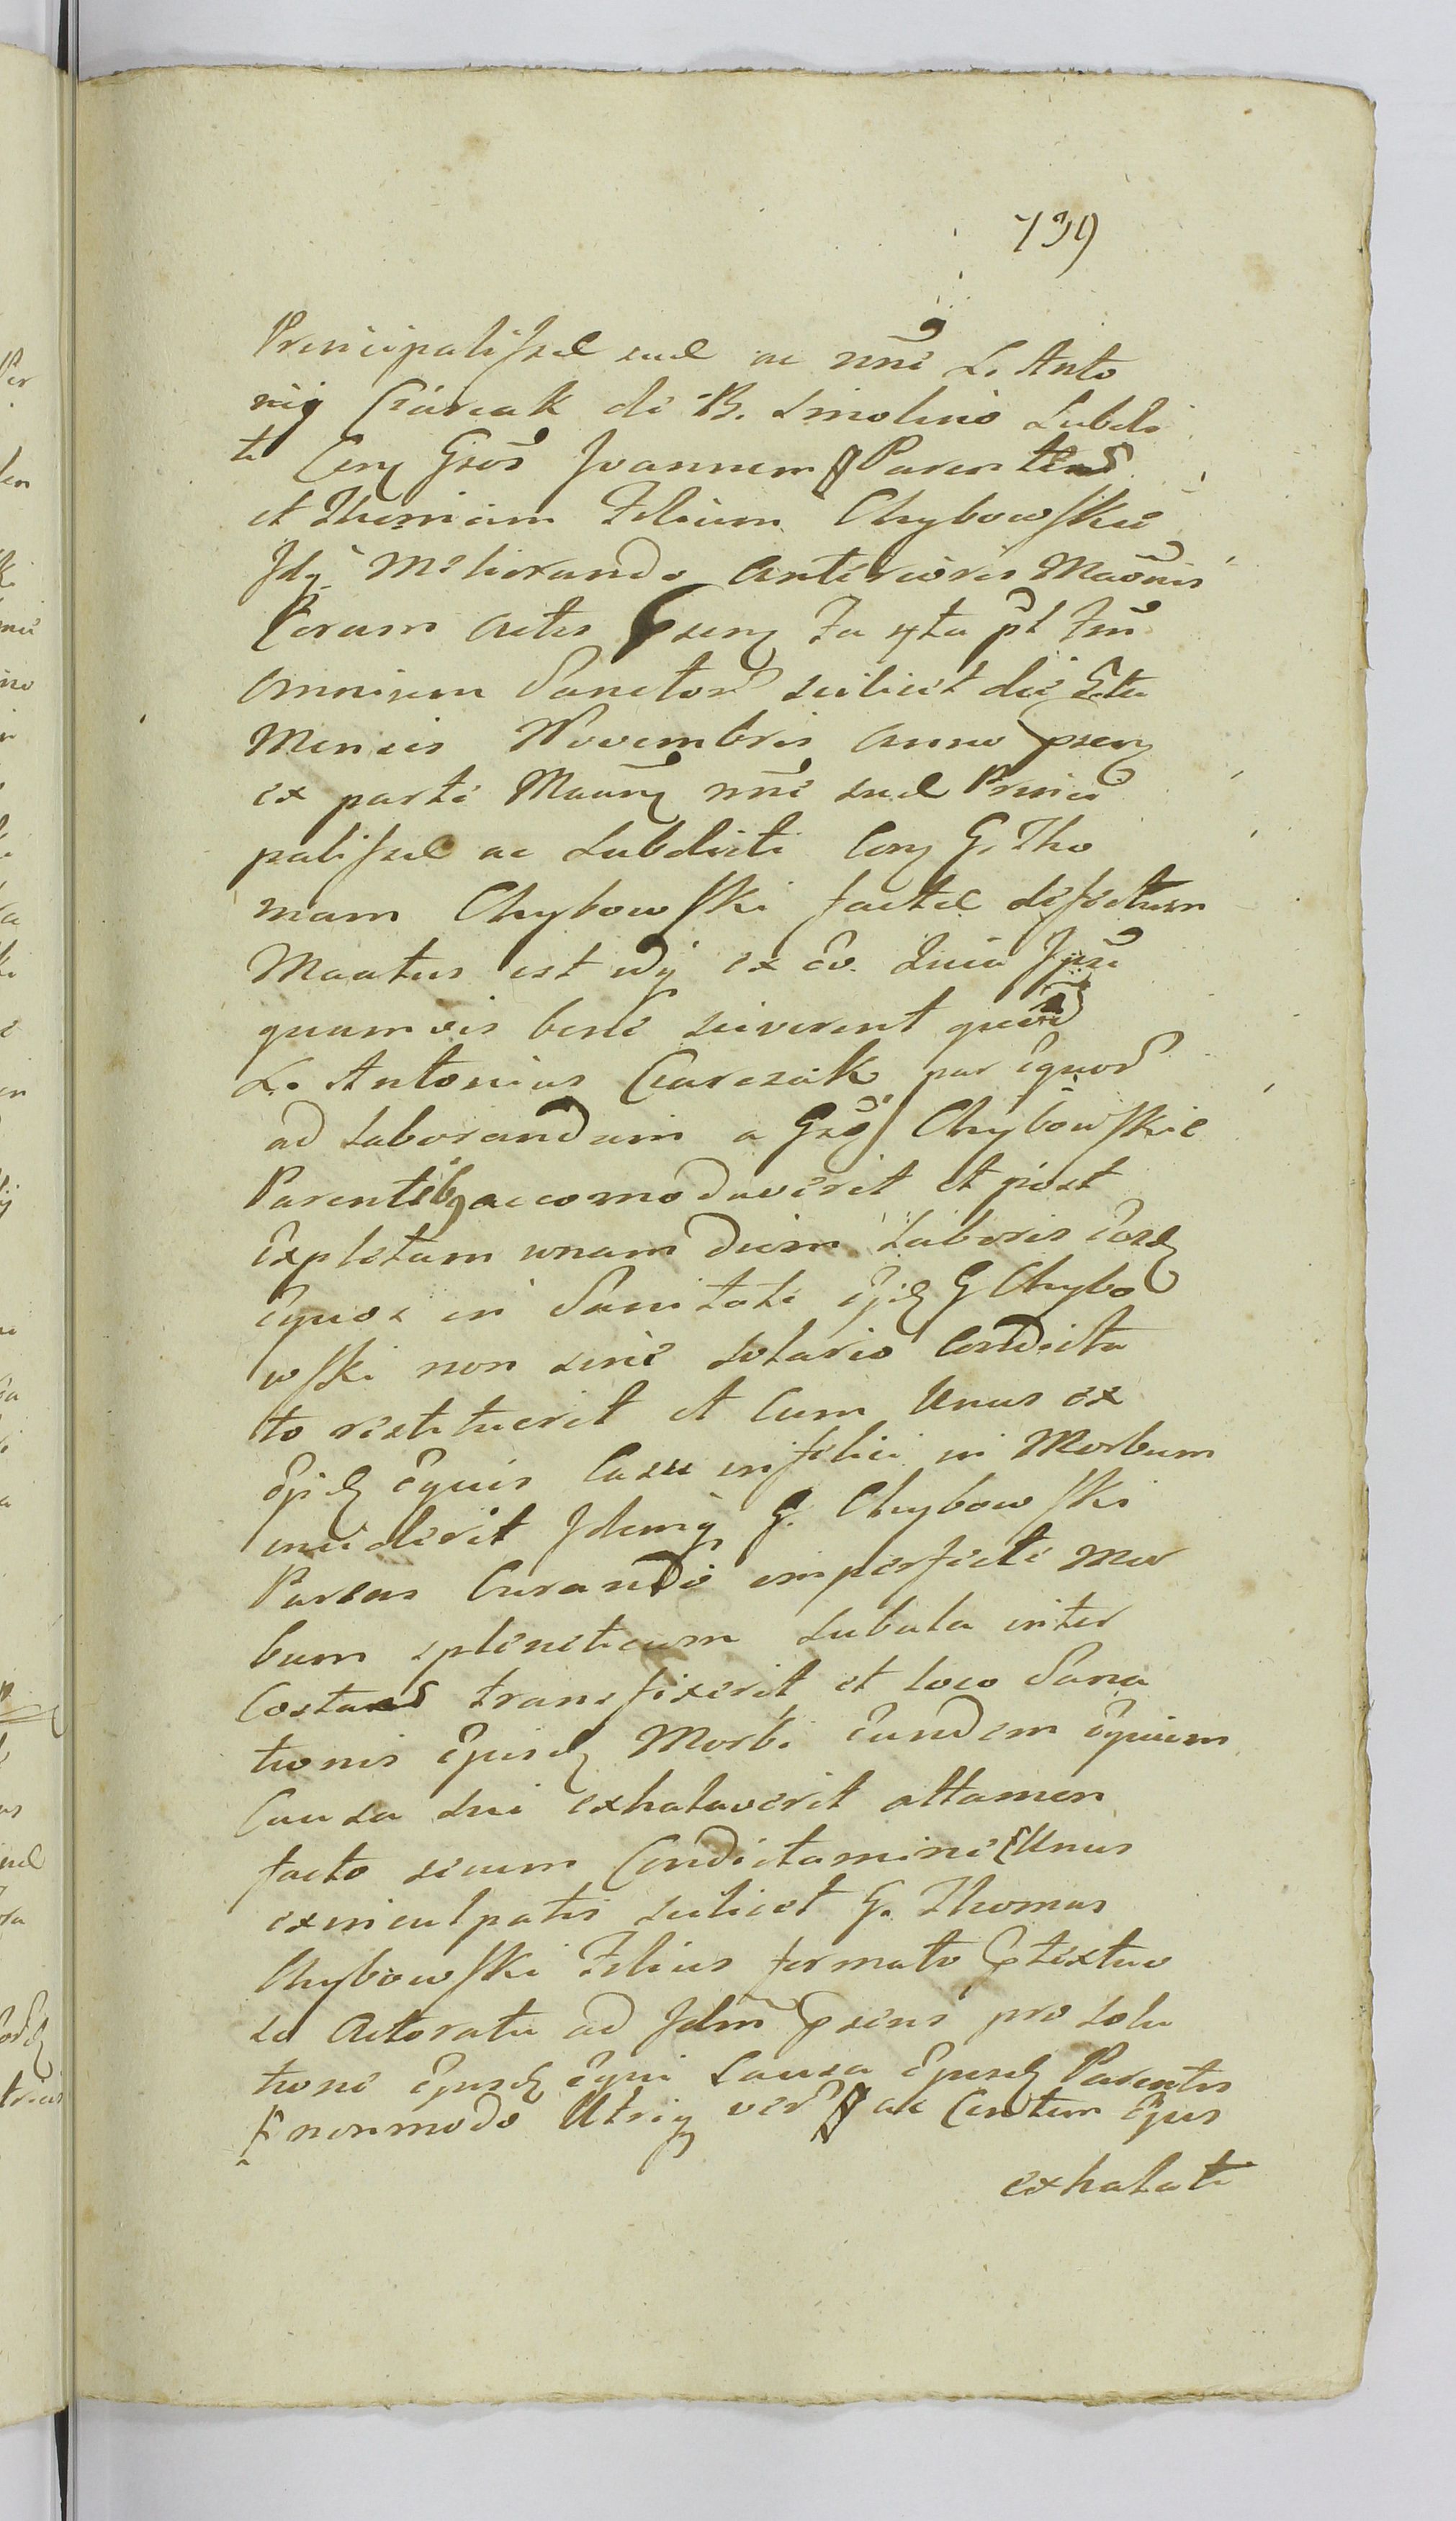 739
Principalis sui ac nni L. Anto
nij Czarcak de B. Smolino Subdi
ti Con Gsos Joannem Parentem
et Thomam Filium Chybowski
Idq Meliorando Anterioris Maonis
Coram Actis Fa 4ta pt Fm
Omnium Sanctor scilicet die
Mensis Novembris Anno
ex parte nni sui Princi
palis ac Subditi Con G. Tho
mam Chybowski factae defectum
Maatus est idq ex eo. Quia
quamvis bene sciverent quod
L. Antonius Czarczak par Equor
ad laborandum a Gso Chybowskie
Parentibq accomodaverit et post
Expletam unam diem Laboris Eosd
Equos in Sanitate Ejd G Chybo
wski non sine solario Condicta
to restituerit et Cum Unus ex
Ejd Equis Casu infelici in Morbum
inciderit Idemq G. Chybowski
Parens Curando imperfecte Mor
bum spleneticum subula inter
Costas transfixerit et loco Sana
tionis Ejusd Morbi Eundem Equum
Causa sui exhalaverit attamen
facto secum Condictamine Unus
ex inculpatis scilicet G. Thomas
Chybowski Filius formato Ptextu
se Actoratu ad pro solu
tione Ejusd Equi Causa Ejusd Parentis
nonmodo Utriq ver ac Centum Ejus
exhalati